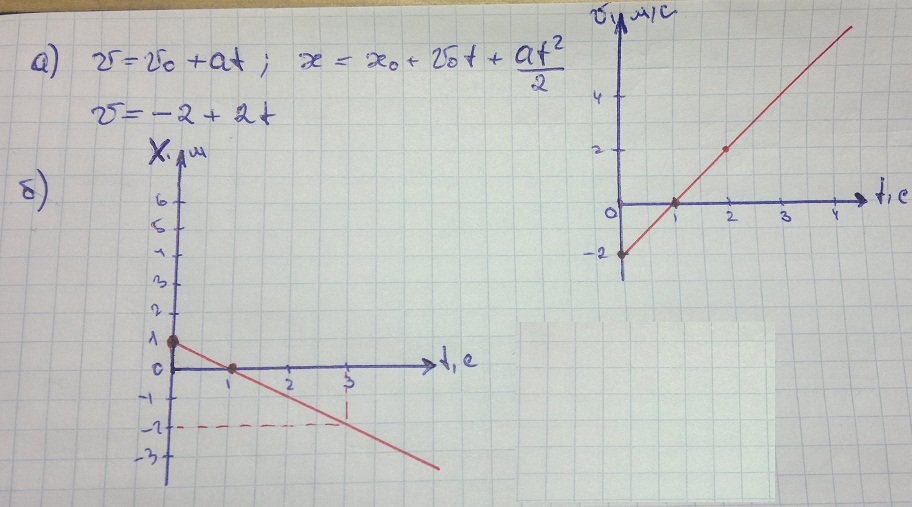 а) v = v₀ + at ; x = x₀ + v₀t + at²/2
v = -2 + 2t
v, м/с
4
2
0 1 2 3 4 t, с
-2
б) x, м
6
5
4
3
2
1
0 1 2 3 t, с
-1
-2
-3